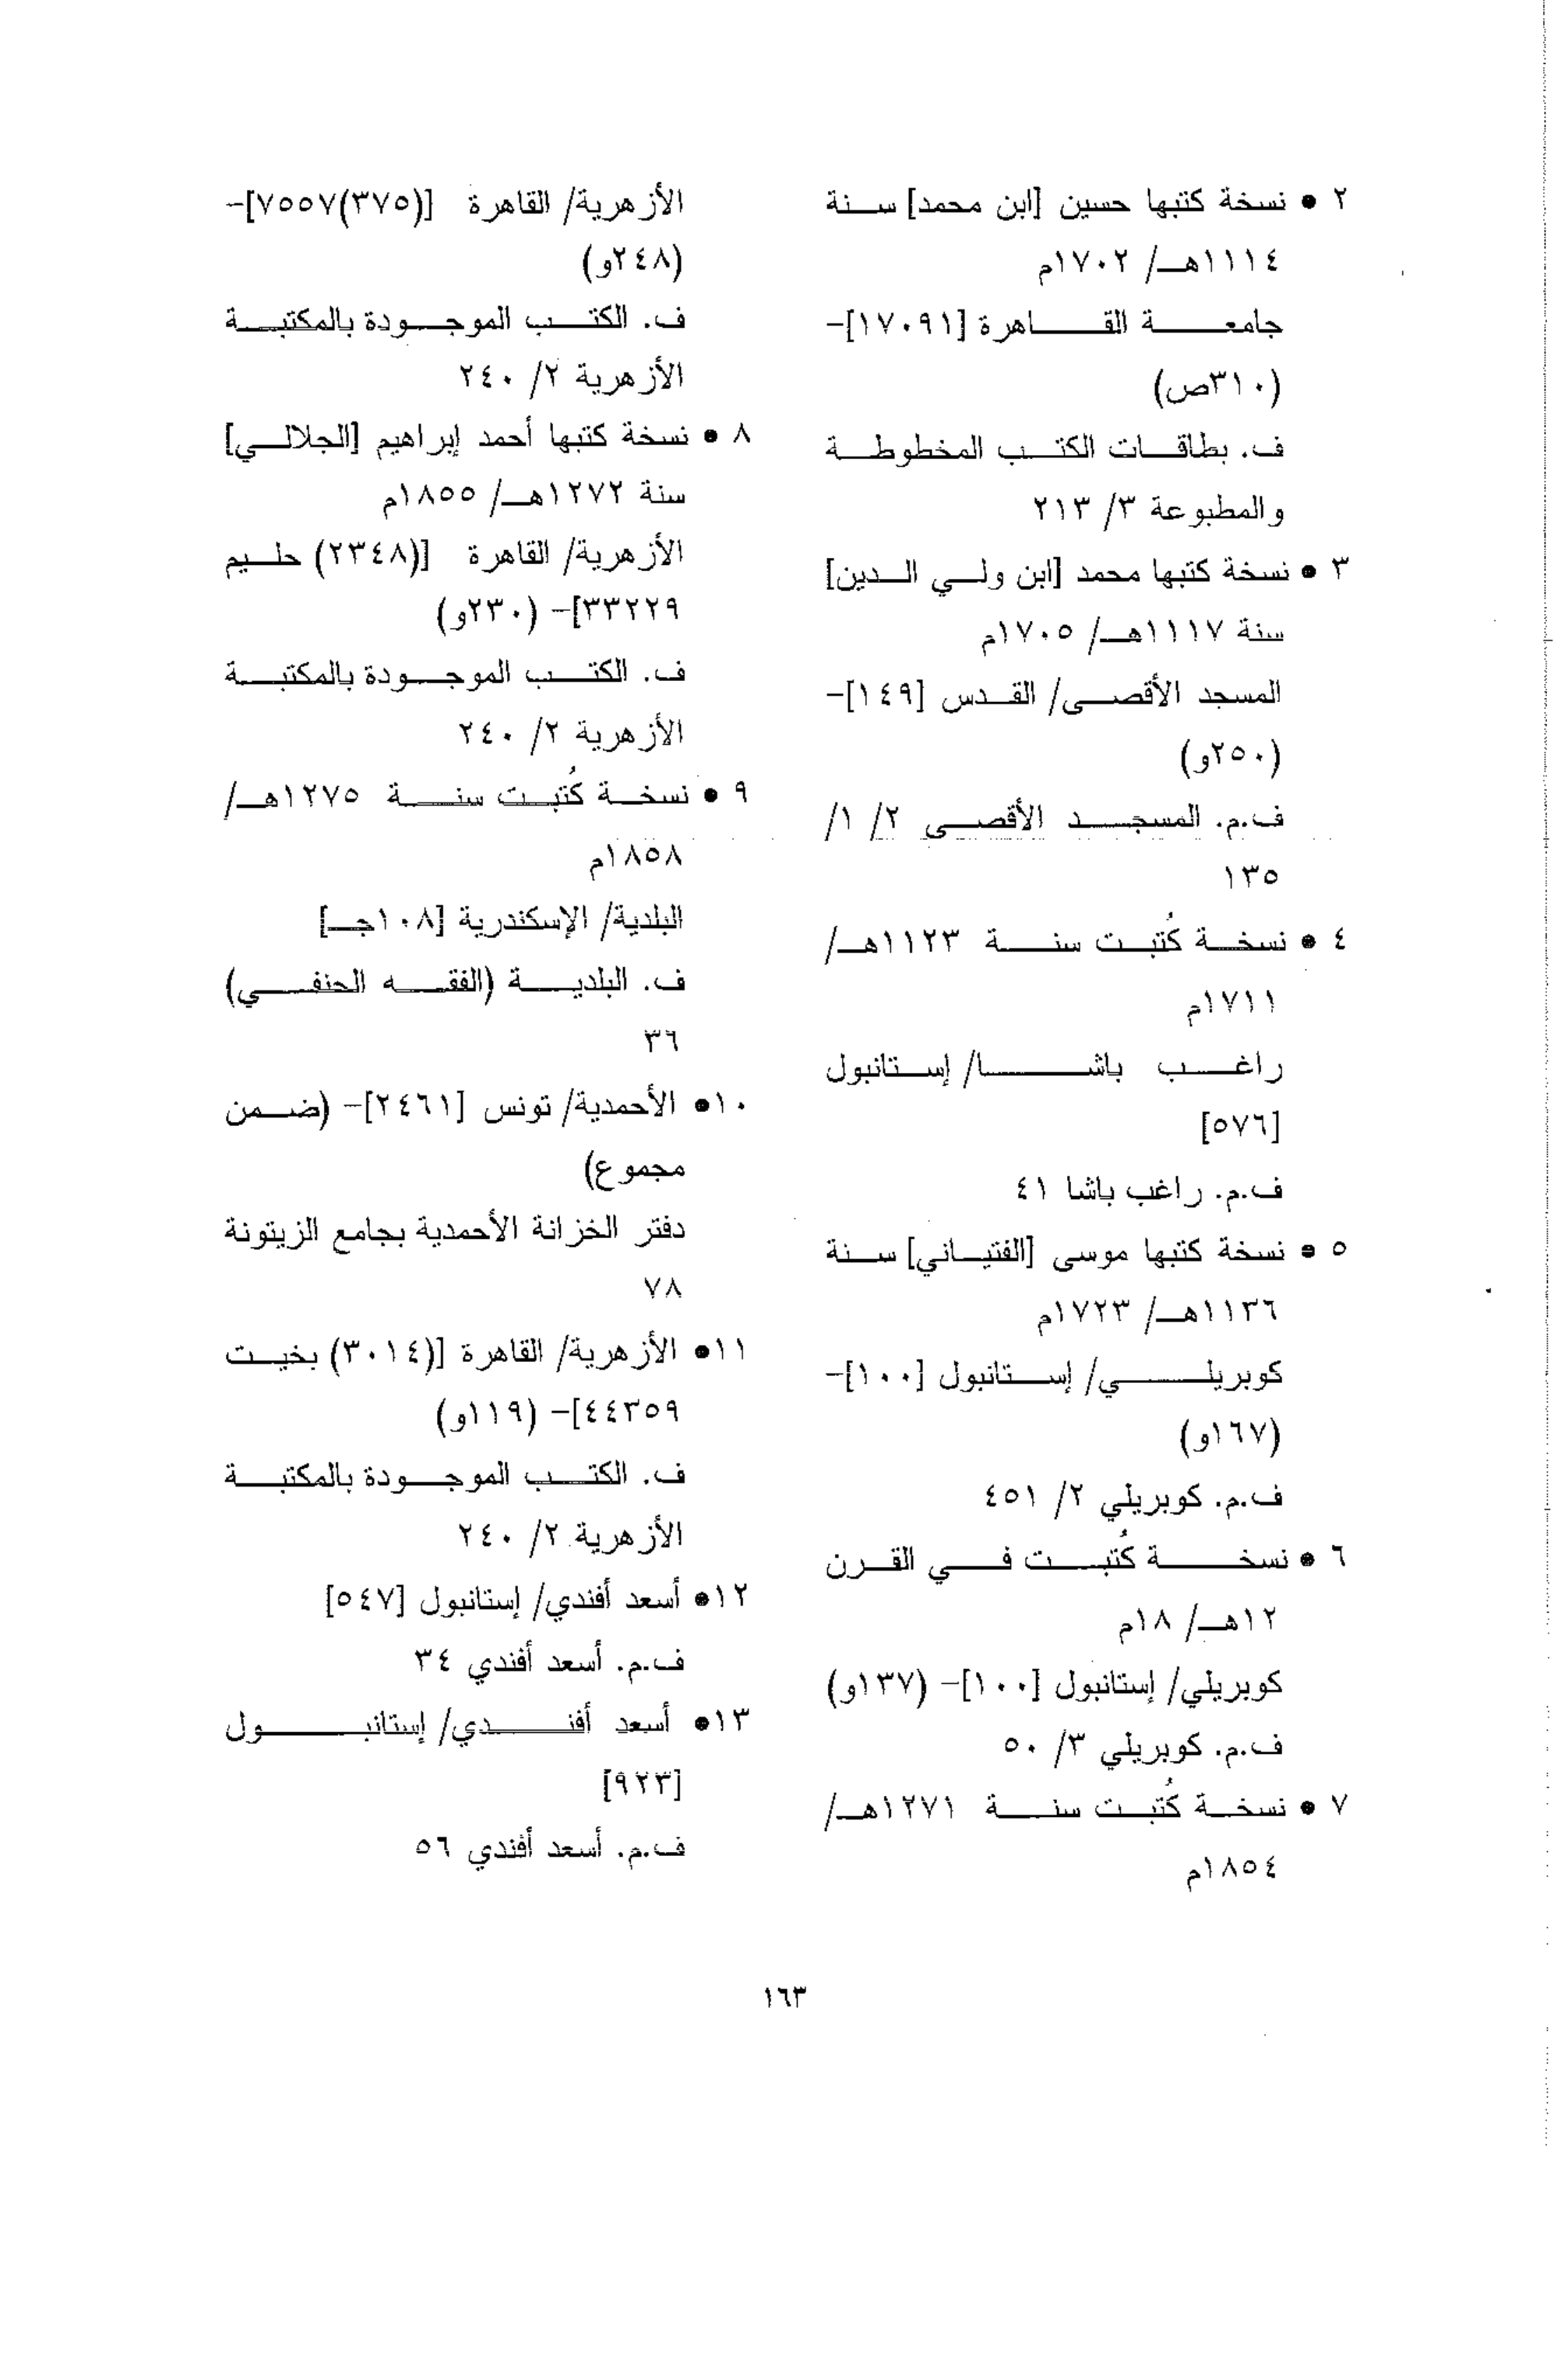 ٢ • نسخة كتبها حسين [ابن محمد] سنة
١١١٤هـ/ ١٧٠٢م
جامعة القاهرة [١٧٠٩١]-
(٣١٠ص)
ف. بطاقات الكتب المخطوطة
والمطبوعة ٣/ ٢١٣
٣ • نسخة كتبها محمد [ابن ولي الدين]
سنة ١١١٧هـ/ ١٧٠٥م
المسجد الأقصى/ القدس [١٤٩]-
(٢٥٠و)
ف.م. المسجد الأقصى ٢/ ١/
١٣٥
٤ • نسخة كُتبت سنة ١١٢٣هـ/
١٧١١م
راغب باشا/ إستانبول
[٥٧٦]
ف.م. راغب باشا ٤١
٥ • نسخة كتبها موسى [الفتياني] سنة
١١٣٦هـ/ ١٧٢٣م
كوبريلي/ إستانبول [١٠٠]-
(١٦٧و)
ف.م. كوبريلي ٢/ ٤٥١
٦ • نسخة كُتبت في القرن
١٢هـ/ ١٨م
كوبريلي/ إستانبول [١٠٠]- (١٣٧و)
ف.م. كوبريلي ٣/ ٥٠
٧ • نسخة كُتبت سنة ١٢٧١هـ/
١٨٥٤م
الأزهرية/ القاهرة [(٣٧٥)٧٥٥٧]-
(٢٤٨و)
ف. الكتب الموجودة بالمكتبة
الأزهرية ٢/ ٢٤٠
٨ • نسخة كتبها أحمد إبراهيم [الجلالي]
سنة ١٢٧٢هـ/ ١٨٥٥م
الأزهرية/ القاهرة [(٢٣٤٨) حليم
٣٣٢٢٩]- (٢٣٠و)
ف. الكتب الموجودة بالمكتبة
الأزهرية ٢/ ٢٤٠
٩ • نسخة كُتبت سنة ١٢٧٥هـ/
١٨٥٨م
البلدية/ الإسكندرية [١٠٨جـ]
ف. البلدية (الفقه الحنفي)
٣٦
١٠• الأحمدية/ تونس [٢٤٦١]- (ضمن
مجموع)
دفتر الخزانة الأحمدية بجامع الزيتونة
٧٨
١١• الأزهرية/ القاهرة [(٣٠١٤) بخيت
٤٤٣٥٩]- (١١٩و)
ف. الكتب الموجودة بالمكتبة
الأزهرية ٢/ ٢٤٠
١٢• أسعد أفندي/ إستانبول [٥٤٧]
ف.م. أسعد أفندي ٣٤
١٣• أسعد أفندي/ إستانبول
[٩٢٣]
ف.م. أسعد أفندي ٥٦
١٦٣